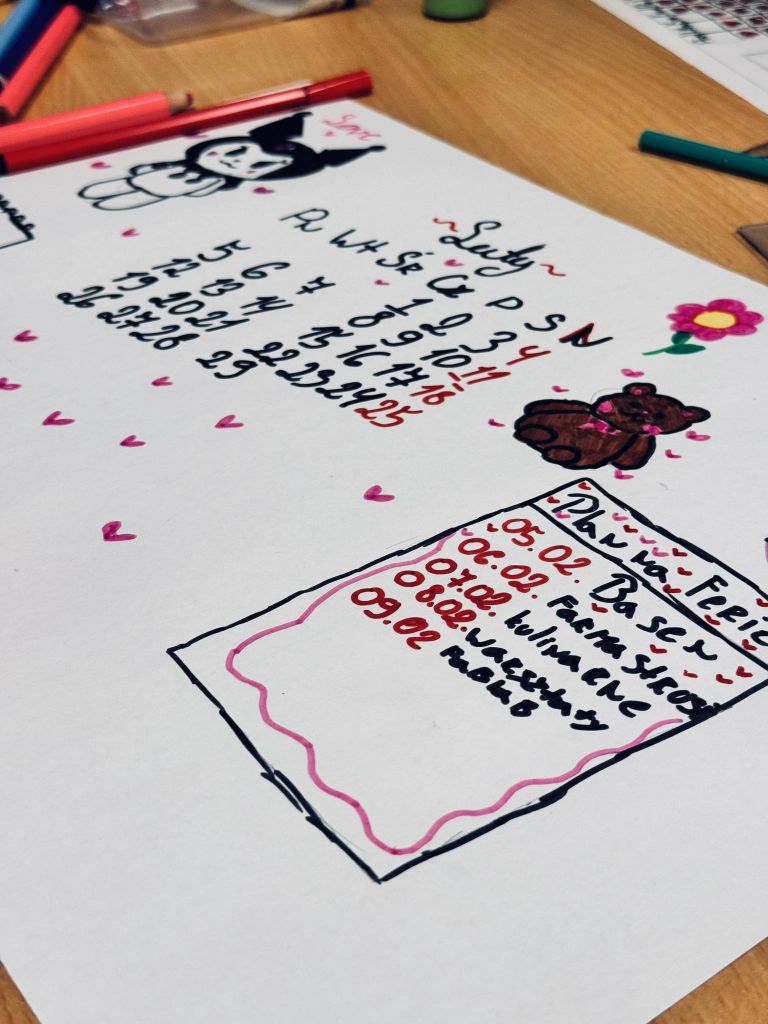 ~Luty~
Pn Wt Śr Cz P S N
1 2 3 4
5 6 7 8 9 10 11
12 13 14 15 16 17 18
19 20 21 22 23 24 25
26 27 28 29
Plan na Ferie
05.02. Basen
06.02. Farma Strusi
07.02. kulinarne
08.02. warsztaty
09.02 FabLab